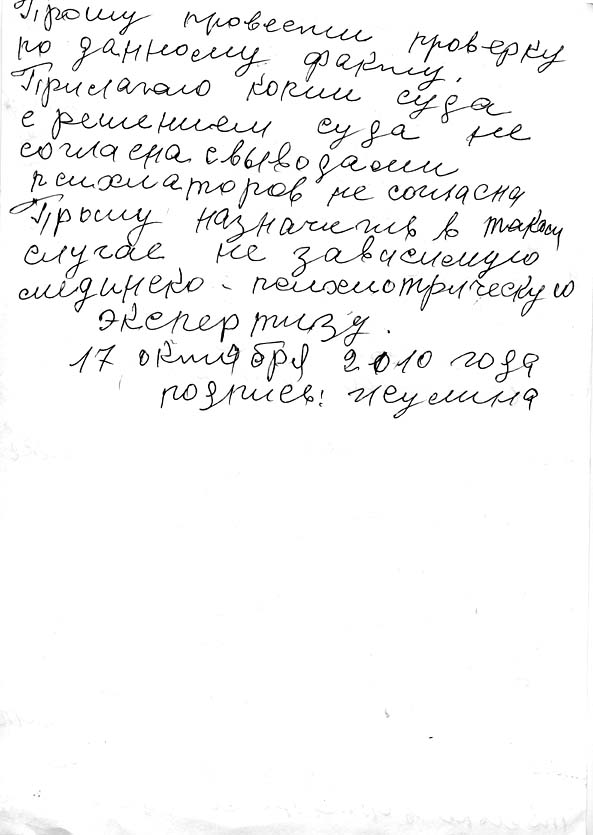 Прошу провести проверку
по данному факту.
Прилагаю копии суда
с решением суда не
согласна. с выводами
психиаторов не согласна
Прошу назначить в таком
случае не зависимую
мединско - психиотрическую
экспертизу.
17 октября 2010 года
подпись: